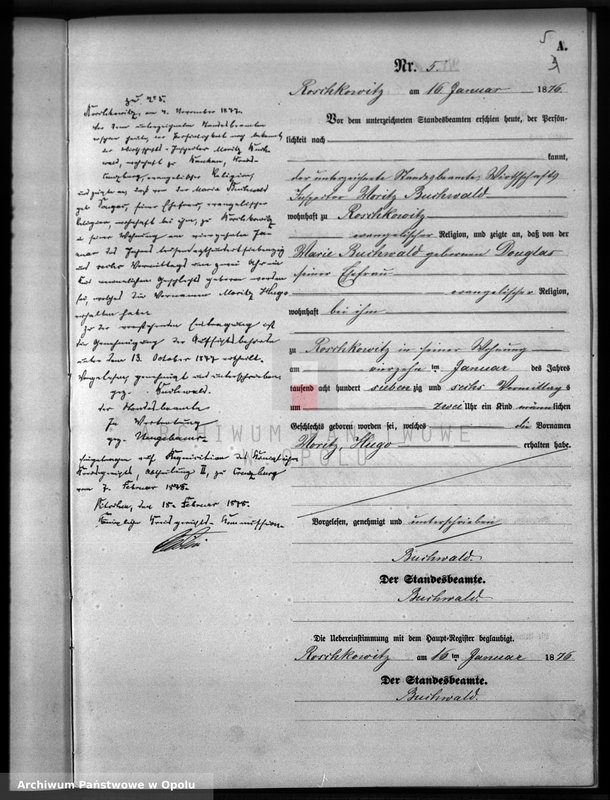 5
A.
Nr. 5.
Roschkowitz am 16 Januar 1876
Vor dem unterzeichneten Standesbeamten erschien heute, der Persön-
lichkeit nach
kannt,
der unterzeichnete Standesbeamte, Wirthschafts
Inspector Moritz Buchwald
wohnhaft zu Roschkowitz
evangelischer Religion, und zeigte an, daß von der
Marie Buchwald geborenen Douglas
seiner Ehefrau
evangelischer Religion,
wohnhaft bei ihm
zu Roschkowitz in seiner Wohnung
am vierzehn ten Januar des Jahres
tausend acht hundert siebenzig und sechs Vormittags
um zwei Uhr ein Kind männlichen
Geschlechts geboren worden sei, welches die Vornamen
Moritz, Hugo erhalten habe.
Vorgelesen, genehmigt und unterschrieben
Buchwald.
Der Standesbeamte.
Buchwald.
Die Uebereinstimmung mit dem Haupt-Register beglaubigt.
Roschkowitz am 16 ten Januar 1876
Der Standesbeamte.
Buchwald.
zu No 5.
Roschkowitz, am 4. November 1877.
Vor dem unterzeichneten Standesbeamten
erschien heute, der Persönlichkeit nach bekannt,
der Wirthschafts-Inspector Moritz Buch-
wald, wohnhaft zu
evangelischer Religion
und zeigte an, daß von der Marie Buchwald
seiner Ehefrau, evangelischer
Religion, wohnhaft bei ihm, zu Roschkowitz
in seiner Wohnung am vierzehnten Jan
uar des Jahres tausendachthundertsiebenzig
und sechs Vormittags um zwei Uhr ein
Kind männlichen Geschlechts geboren worden
sei, welches die Vornamen Moritz Hugo
erhalten habe.
Zu der vorstehenden Eintragung ist
die Genehmigung der Aufsichtsbehörde
unter dem 13. October 1877 ertheilt.
Vorgelesen, genehmigt und unterschrieben
gez. Buchwald.
der Standesbeamte
In Vertretung
gez. Ungebauer
Eingetragen auf Requisition des Königlichen
Kreisgerichts Abtheilung II, zu Creuzburg
vom 7. Februar 1878.
Pitschen, den 15. Februar 1878.
Königliche Kreisgerichts-Kommission
ARCHIWUM PAŃSTWOWE
W OPOLU
Archiwum Państwowe w Opolu